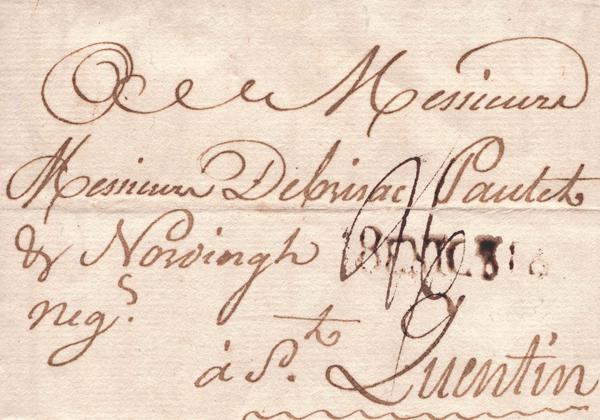 A Messieurs
Messieurs Debrissac Paulet
& Norvingh
neg.s
à St. Quentin